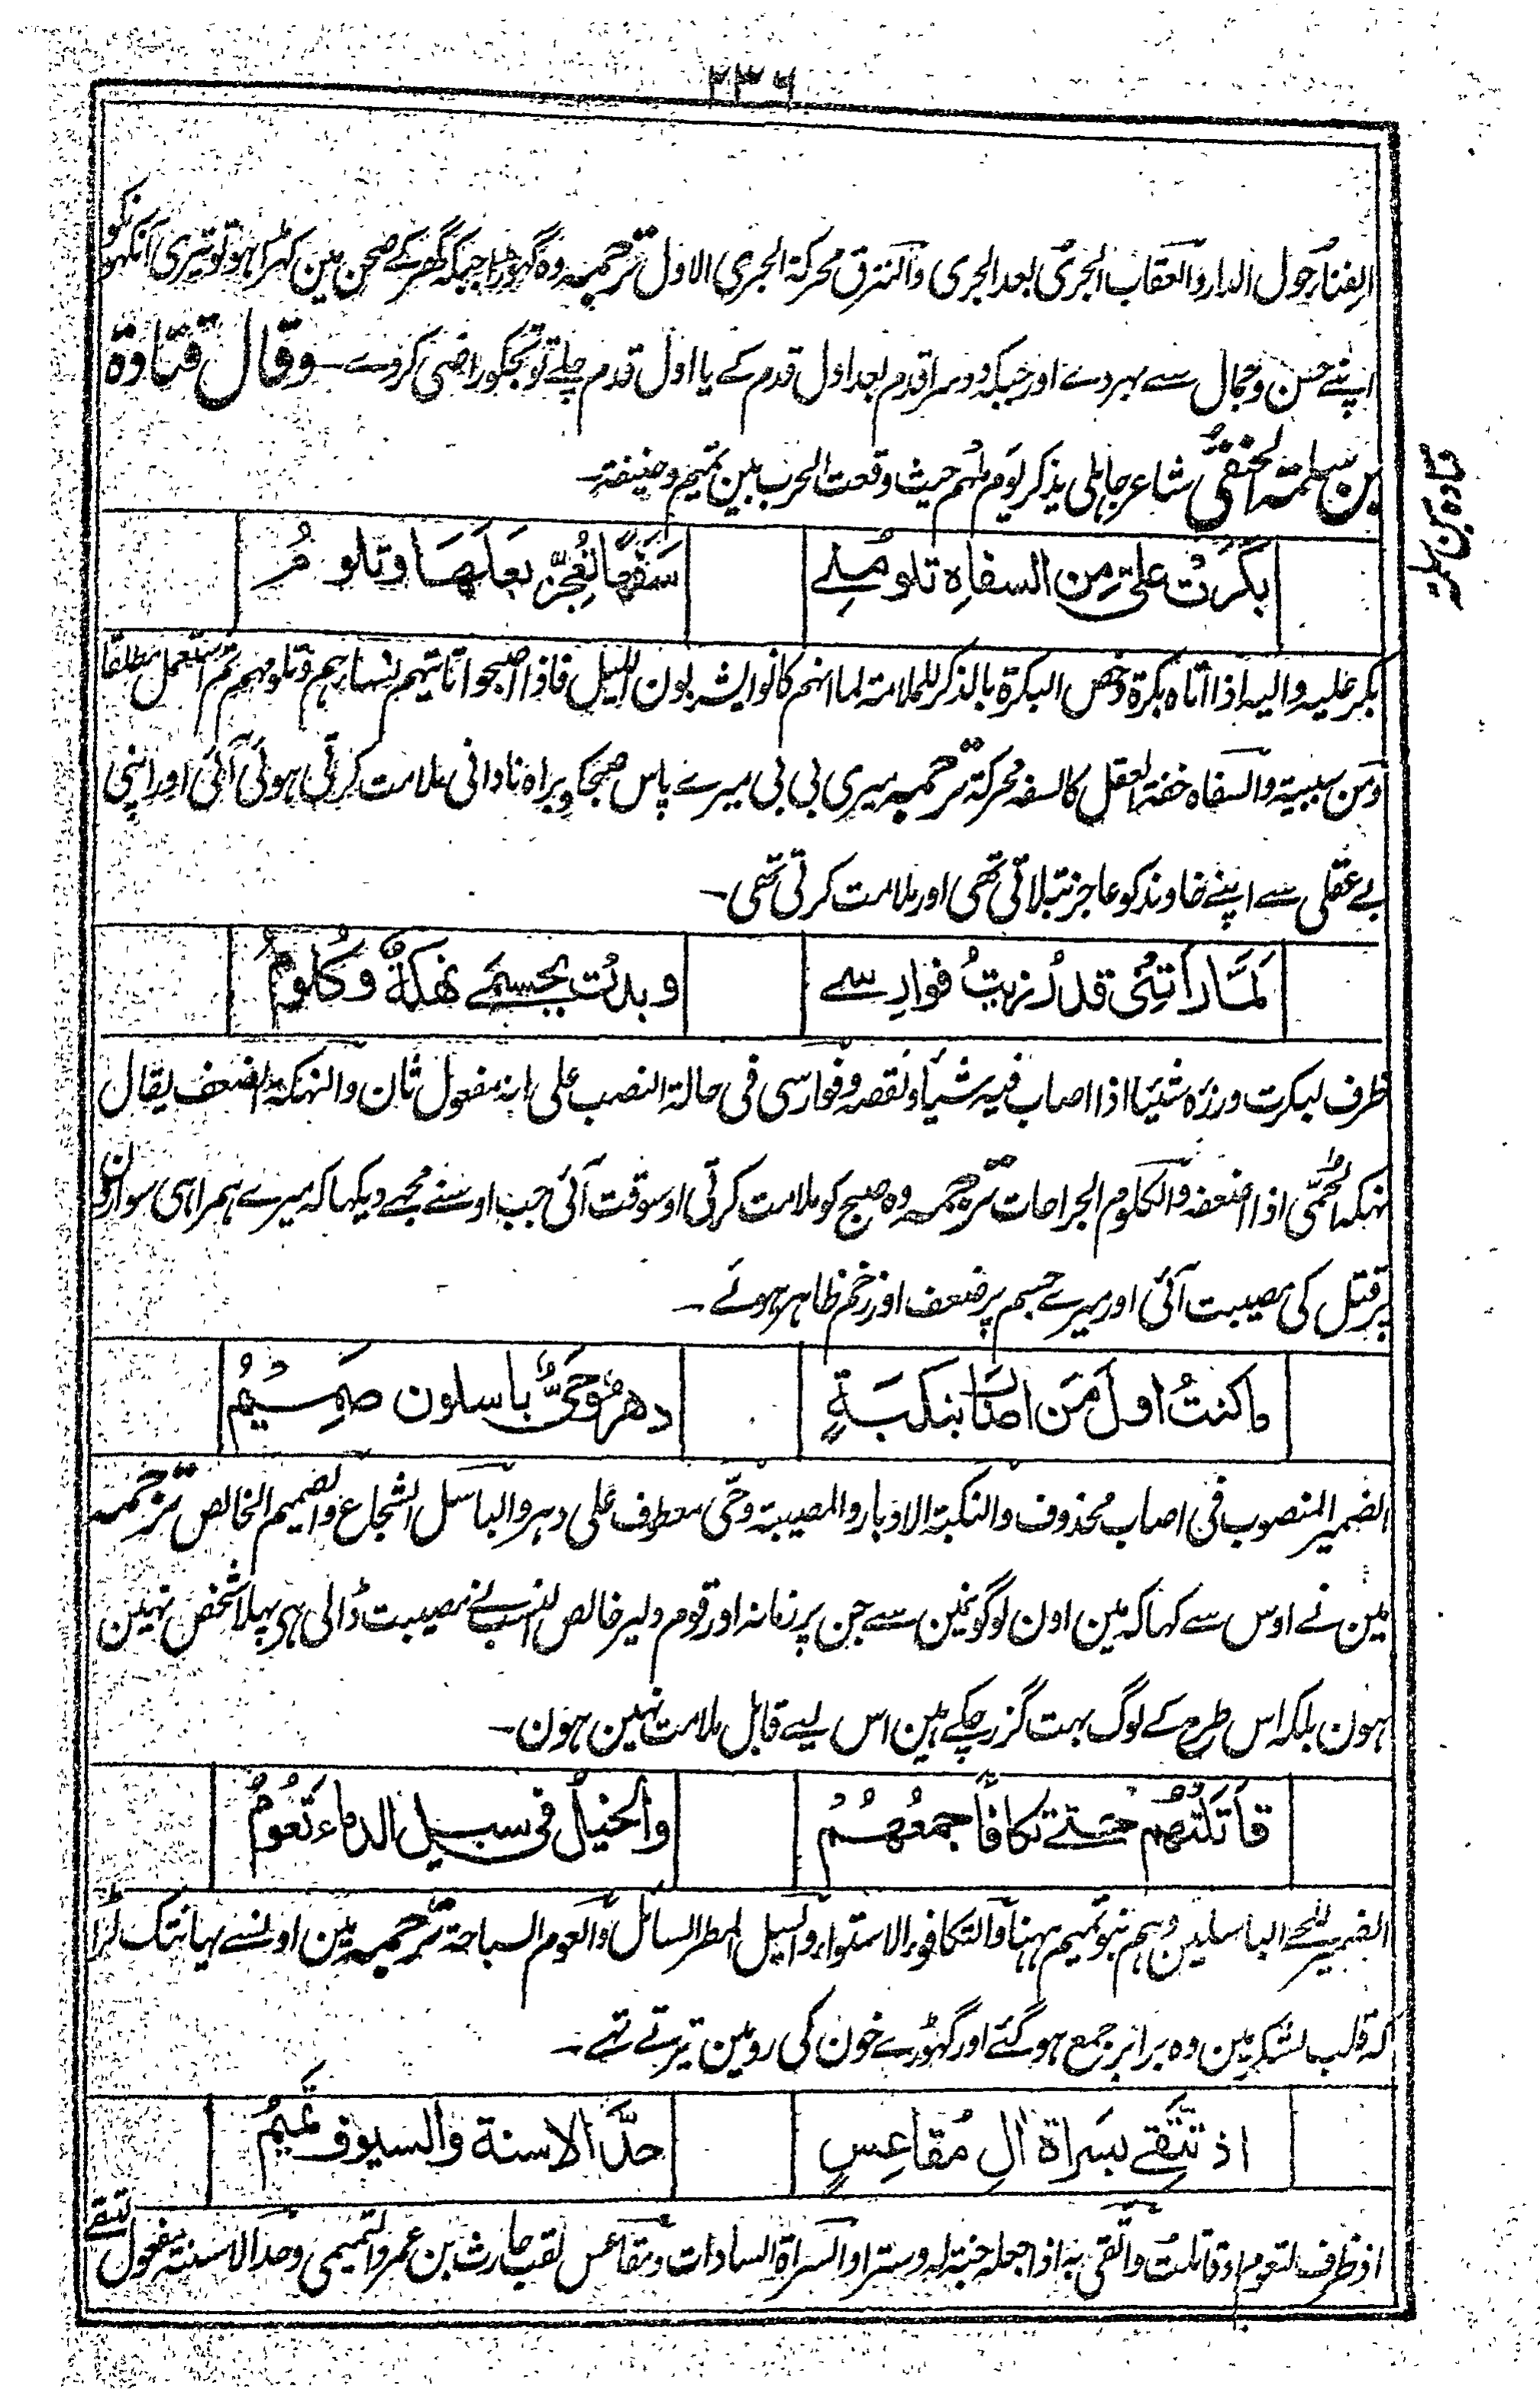 ۲۳۶
الفناء حول الدار والعقاب الجری بعد الجری والنزق محرکة الجری الاول ترجمہ وہ گہوڑا جبکہ گھر کے صحن مین کہڑا ہو تو تیری آنکہونکو
اپنے حسن و جمال سے بہردے اور جبکہ دوسرا قدم بعد اول قدم کے یا اول قدم چلے تو تجکو راضی کردے ــ وقال قتادة
بن سلمة الحنفیُّ شاعر جاہلی یذکر یوم ملہم حیث وقعت الحرب بین تمیم و حنیفة ــ
قتادہ بن سلمة
بکَرَتْ علیّ مِن السفاہِ تلومُنے
سَفَهًا تُعجِّز بَعلَهَا وتلومُ
بکر علیہ والیہ اذا اتاہ بکرة وخص البکرة بالذکر للملامة لما انہم کانوا یشربون اللیل فاذا اصبحوا تاتیہم نساءہم وتلومہم ثم استعمل مطلقا
ومن سببیة والسفاہ خفة العقل کالسفہ محرکة ترجمہ میری بی بی میرے پاس صبحکو براہ نادانی ملامت کرتی ہوئی آئی اور اپنی
بے عقلی سے اپنے خاوند کو عاجز بتلاتی تھی اور ملامت کرتی تھی ــ
لَمَّا رَاَتْنِیْ قد رُزِیتُ فوارِسے
وبدتْ بجسمے نَهکةٌ وکُلومُ
ظرف لبکرت ورزءہ شیئا اذا اصاب فیہ شیأ ونقصہ وفوارسی فی حالة النصب علی انہ مفعول ثان والنہکة الضعف یقال
نہکہ الحمّی اذا اضعفہ والکلوم الجراحات ترجمہ وہ صبح کو ملامت کرتی اوسوقت آئی جب اوسنے مجہے دیکہا کہ میرے ہمراہی سوارون
پر قتل کی مصیبت آئی اور میرے جسم پر ضعف اور زخم ظاہر ہوئے ــ
ما کنتُ اولَ مَن اصابَ بنکبَةٍ
دهرٌ وحَیٌّ باسلون صَمِیمُ
الضمیر المنصوب فی اصاب محذوف والنکبة الادبار والمصیبة وحیّ معطوف علی دہر والباسل الشجاع والصمیم الخالص ترجمہ
مین نے اوس سے کہا کہ مین اون لوگونمین سے جن پر زمانہ اور قوم دلیر خالص النسب نے مصیبت ڈالی ہی پہلا شخص نہین
ہون بلکہ اس طرح کے لوگ بہت گزر چکے ہین اس لیے قابل ملامت نہین ہون ــ
قاتَلتُهُم حتے تکافَأ جمعُهُمُ
والخیلُ فی سبیلِ الدماء تَعُومُ
الضمیر للحے الباسلین وہم بنو تمیم ہہنا والتکافؤ الاستواء والسیل المطر السائل والعوم السباحة ترجمہ مین اونسے یہانتک لڑا
کہ قلب لشکر مین وہ برابر جمع ہوگئے اور گہوڑے خون کی رومین تیرتے تہے ــ
اذ تتّقے بسَراةِ اٰلِ مُقاعِسٍ
حدَّ الاسنة والسیوف تمیمُ
اذ ظرف لتعوم او قاتلت واتقی بہ اذا جعلہ جنة لہ وسترا والسراة السادات ومقاعس لقب حارث بن عمرو التمیمی وحد الاسنة مفعول تتقے